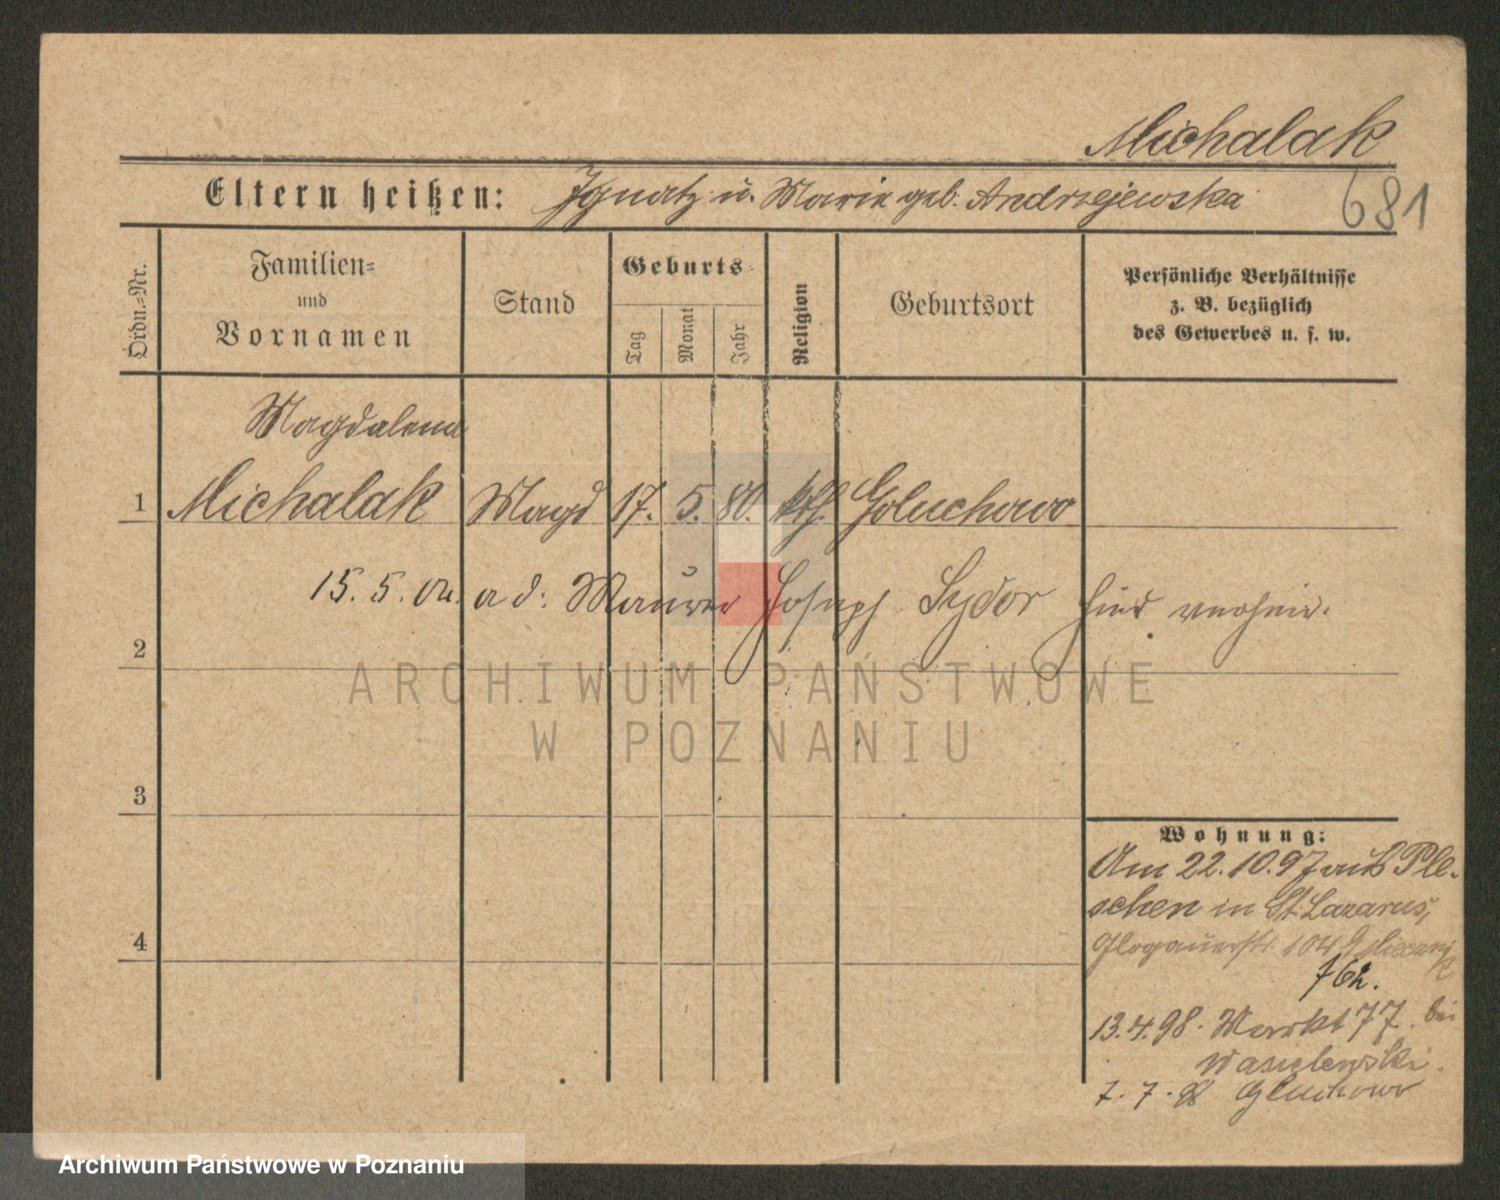 Michalak
681
Eltern heißen: Ignatz u. Marie geb. Andrzejewska
Ordn.-Nr.
Familien-
und
Vornamen
Stand
Geburts-
Tag
Monat
Jahr
Religion
Geburtsort
Persönliche Verhältnisse
z. B. bezüglich
des Gewerbes u. s. w.
Magdalena
1 Michalak Magd 17. 5. 80. kth. Goluchowo
15. 5. a d. Maurer Joseph Sydor hier
2
3
4
Wohnung:
Am 22.10.97 aus Ple-
schen in St. Lazarus,
Glogauerstr. 104
13.4.98. Markt 77. bei
Wasielewski.
7. 7. 98 Gluchowo
ARCHIWUM PAŃSTWOWE
W POZNANIU
Archiwum Państwowe w Poznaniu